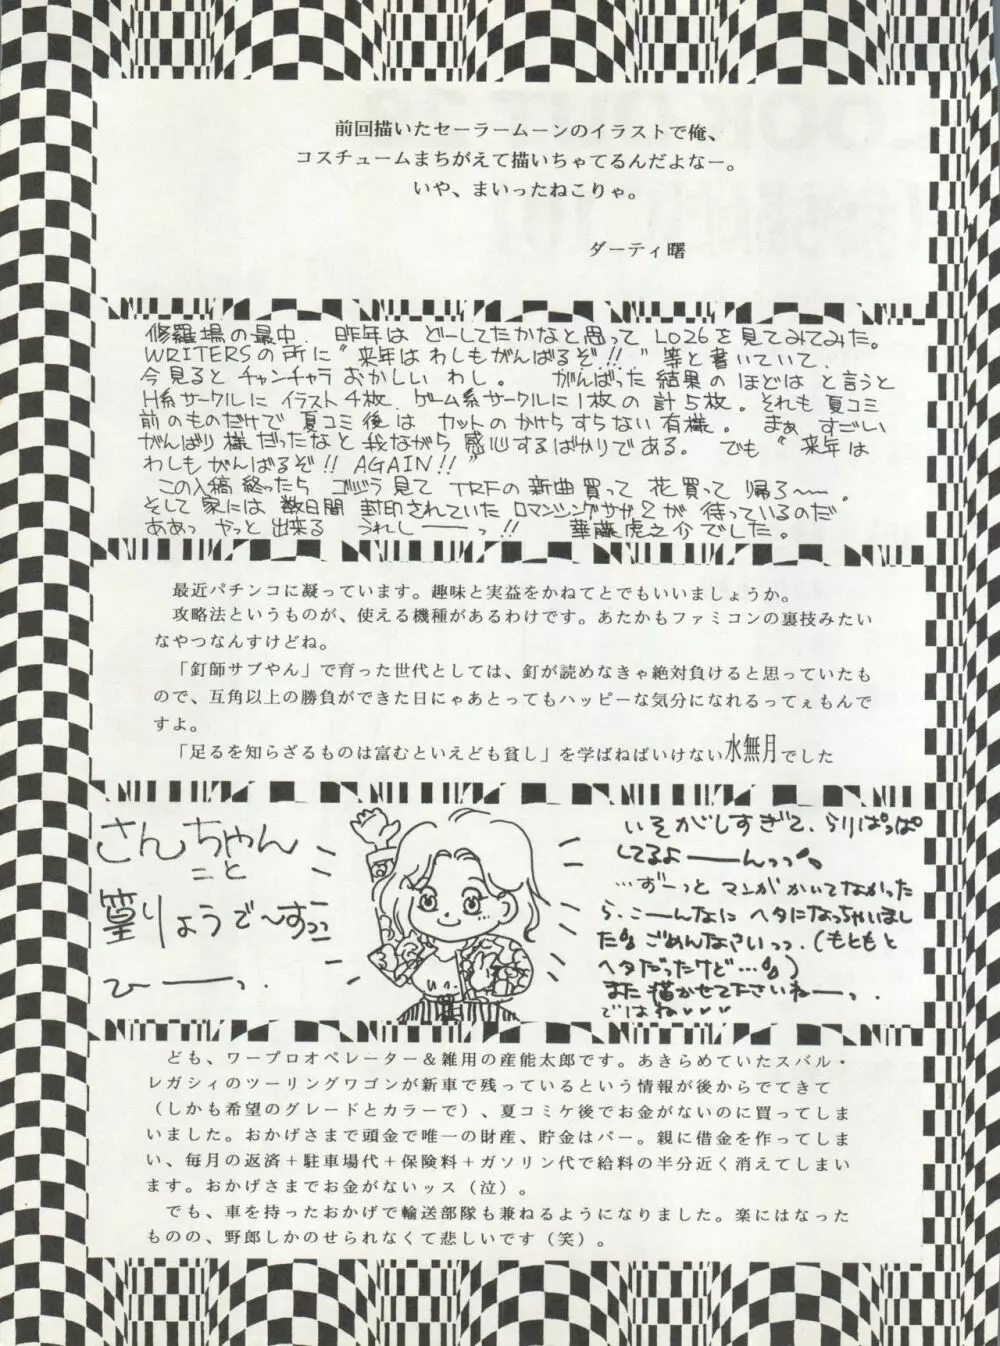 前回描いたセーラームーンのイラストで俺、
コスチュームまちがえて描いちゃてるんだよなー。
いや、まいったねこりゃ。
ダーティ曙
修羅場の最中、昨年は どーしてたかなと思って LO26を見てみてみた。
WRITERSの所に“来年は わしもがんばるぞ!!”等と書いていて、
今見ると チャンチャラ おかしい わし。 がんばった 結果の ほどは と言うと
H系サークルに イラスト4枚、ゲーム系サークルに1枚の 計5枚。それも 夏コミ
前のものだけで 夏コミ後は カットの かけら すらない 有様。 まぁ すごい
がんばり 様だったなと 我ながら 感心するばかりである。 でも“来年は
わしもがんばるぞ!! AGAIN!!”
この入稿 終ったら ゴジラ 見て TRFの 新曲 買って 花買って 帰ろ〜。
そして 家には 数日間 封印されていた ロマンシングサガ2が 待っているのだ
ああっ やっと 出来る うれしーーっ!! 華藤虎之介でした。
最近パチンコに凝っています。趣味と実益をかねてとでもいいましょうか。
攻略法というものが、使える機種があるわけです。あたかもファミコンの裏技みたい
なやつなんすけどね。
「釘師サブやん」で育った世代としては、釘が読めなきゃ絶対負けると思っていたも
ので、互角以上の勝負ができた日にゃあとってもハッピーな気分になれるってぇもんで
すよ。
「足るを知らざるものは富むといえども貧し」を学ばねばいけない水無月でした
さんちゃん
こと
篁りょうで〜すっっ
ひーーっ.
いそがしすぎて、らりぱっぱ
してるよーーんっっ
…ずーっと マンガかいてなかった
ら、こーんなに ヘタになっちゃいまし
た ごめんなさいっっ.(もともと
ヘタだったけど…)
また 描かせて下さいねーっ.
ではね♥♥♥
ども、ワープロオペレーター＆雑用の産能太郎です。あきらめていたスバル・
レガシィのツーリングワゴンが新車で残っているという情報が後からでてきて
（しかも希望のグレードとカラーで）、夏コミケ後でお金がないのに買ってしま
いました。おかげさまで頭金で唯一の財産、貯金はパー。親に借金を作ってしま
い、毎月の返済＋駐車場代＋保険料＋ガソリン代で給料の半分近く消えてしまい
ます。おかげさまでお金がないッス（泣）。
でも、車を持ったおかげで輸送部隊も兼ねるようになりました。楽にはなった
ものの、野郎しかのせられなくて悲しいです（笑）。